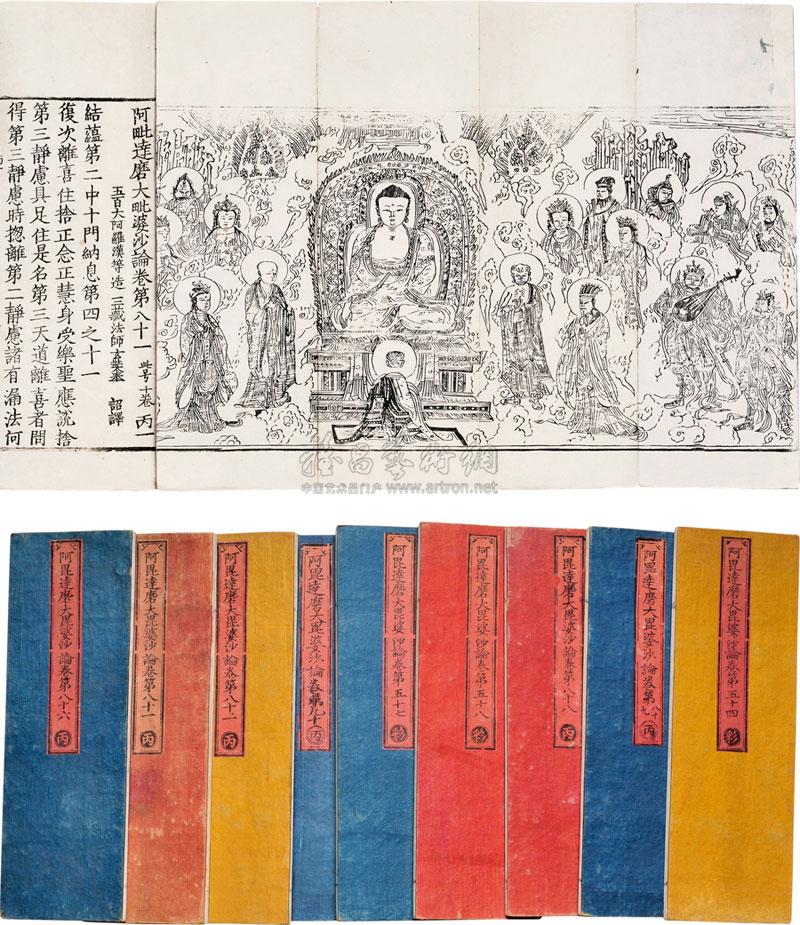 阿毗達磨大毗婆沙論卷第八十一 此号十卷 丙一
五百大阿羅漢等造 三藏法師玄奘奉 詔譯
結蘊第二中十門納息第四之十一
復次離喜住捨正念正慧身受樂聖應說捨
第三靜慮具足住是名第三天道離喜者問
得第三靜慮時揔離第二靜慮諸有漏法何
雅昌藝術網
中国艺术品门户 www.artron.net
阿毘達磨大毘婆沙論卷第八十六 丙
阿毘達磨大毘婆沙論卷第八十一 丙
阿毘達磨大毘婆沙論卷第八十二 丙
阿毘達磨大毘婆沙論卷第九十 丙
阿毘達磨大毘婆沙論卷第五十七
阿毘達磨大毘婆沙論卷第五十八
阿毘達磨大毘婆沙論卷第八十八 丙
阿毘達磨大毘婆沙論卷第八十九 丙
阿毘達磨大毘婆沙論卷第五十四